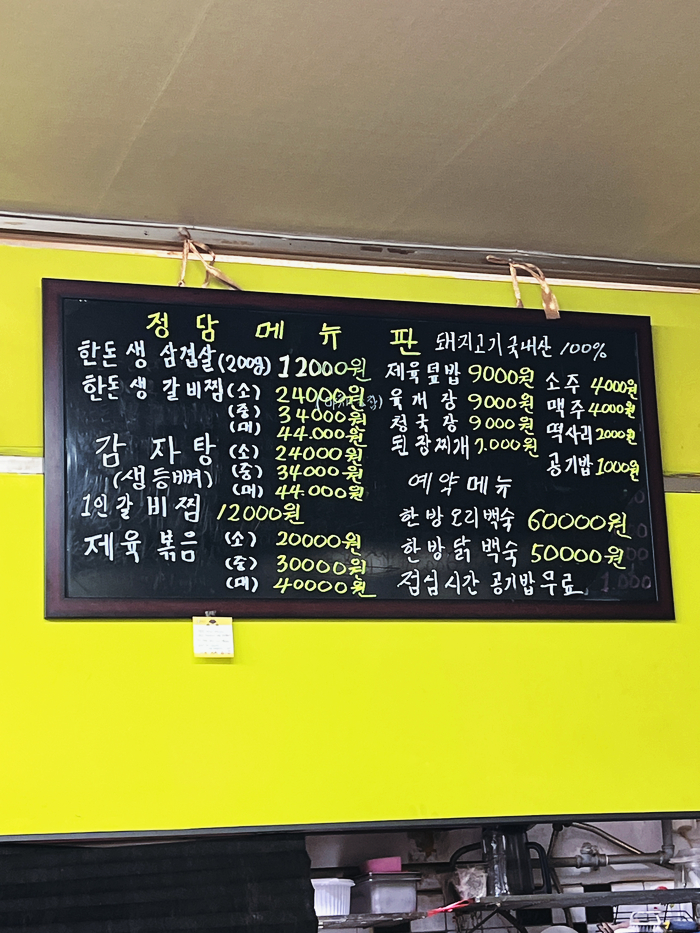 정담 메뉴판 돼지고기국내산 100%
한돈생 삼겹살(200g) 12000원
한돈생 갈비찜(소) 24000원
(중) 34000원
(대) 44.000원
감자탕 (소) 24000원
(생등뼈) (중) 34000원
(대) 44.000원
1인갈비찜 12000원
제육볶음 (소) 20000원
(중) 30000원
(대) 40000원
제육덮밥 9000원
육개장 9000원
청국장 9000원
된장찌개 7.000원
소주 4000원
맥주 4000원
떡사리 2000원
공기밥 1000원
예약메뉴
한방오리백숙 60000원
한방닭백숙 50000원
점심시간 공기밥무료